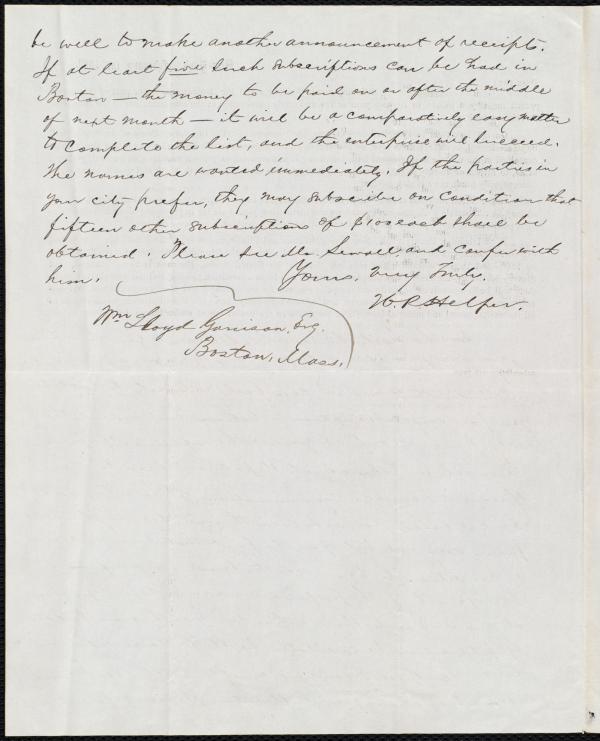 be well to make another announcement of receipts.
If at least five such subscriptions can be had in
Boston — the money to be paid on or after the middle
of next month — it will be a comparatively easy matter
to complete the list, and the enterprise will succeed.
The names are wanted immediately. If the parties in
your city prefer, they may subscribe on condition that
fifteen other subscriptions of $100 each shall be
obtained. Please see Mr. Sewall, and confer with
him.
Yours, Very Truly,
H. R. Helper.
Wm Lloyd Garrison, Esq.
Boston, Mass.